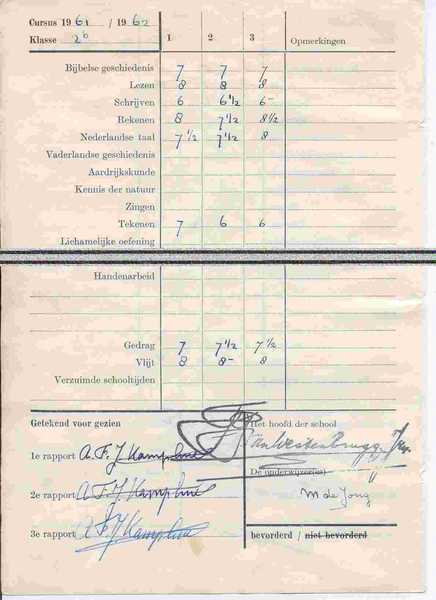 Cursus 1961 / 1962
Klasse 2b 1 2 3 Opmerkingen
Bijbelse geschiedenis 7 7 7
Lezen 8 8 8
Schrijven 6 6 1/2 6-
Rekenen 8 7 1/2 8 1/2
Nederlandse taal 7 1/2 7 1/2 8
Vaderlandse geschiedenis
Aardrijkskunde
Kennis der natuur
Zingen
Tekenen 7 6 6
Lichamelijke oefening
Handenarbeid
Gedrag 7 7 1/2 7 1/2
Vlijt 8 8- 8
Verzuimde schooltijden
Getekend voor gezien Het hoofd der school
1e rapport A. F. J. Kamphuis
De onderwijzer(es)
2e rapport A. F. J. Kamphuis M de Jong
3e rapport A. F. J. Kamphuis bevorderd / niet bevorderd